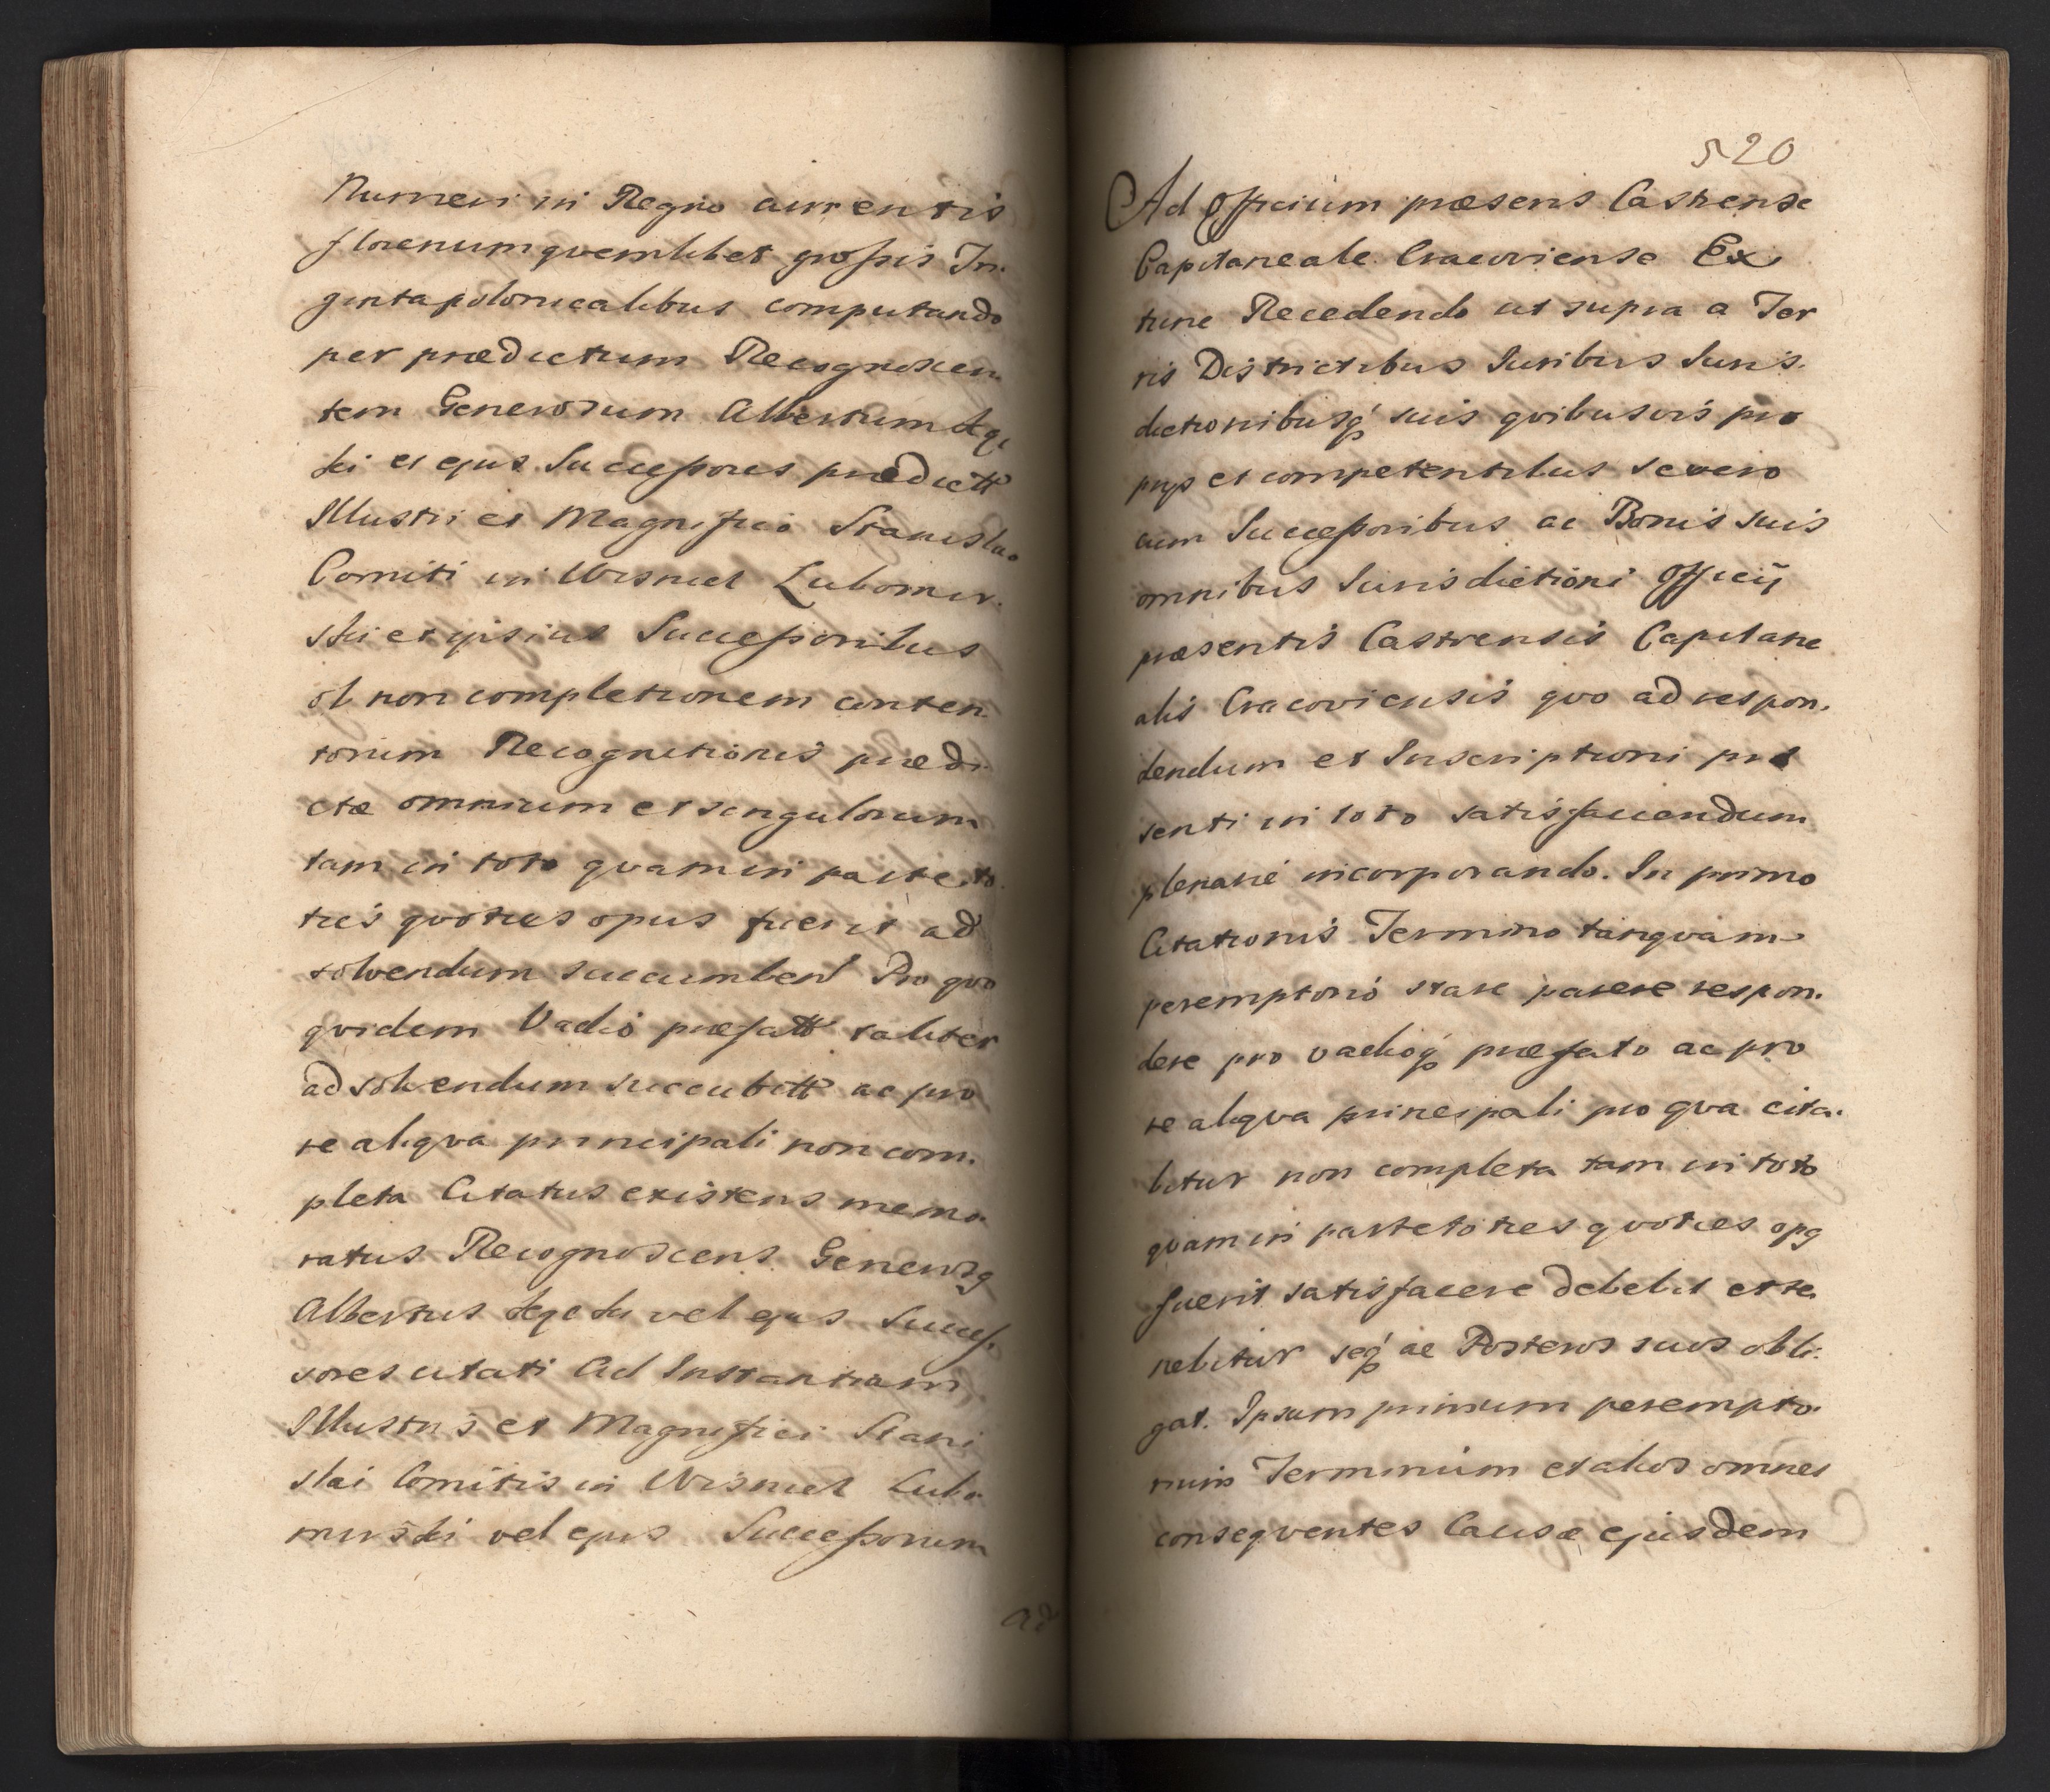 Numeri in Regno currentis
florenum quemlibet grossis Tri
ginta polonicalibus computando
per prædictum Recognoscen
tem Generosum Albertum
ski et ejus Successores prædictt
Illustri et Magnifico Stanislao
Comiti in Wisnicz Lubomir
ski et ipsius Successoribus
ob non completionem conten
torum Recognitionis prædi
ctæ omnium et singulorum
tam in toto quam in parte to
ties quoties opus fuerit ad
solvendum succumben Pro quo
quidem Vadio præfatt taliter
ad solvendum succubitt ac pro
re aliqua principali non com
pleta Citatus existens memo
ratus Recognoscens Generosq
Albertus vel ejus Succes
sores citati Ad Instantiam
Illustris et Magnifici Stani
slai Comitis in Wisnicz Lubo
mirski vel ejus Successorum
ad
520
Ad Officium præsens Castrense
Capitaneale Cracoviense Ex
tunc Recedendo ut supra a Ter
ris Districtibus Iuribus Iuris
dictionibusq suis quibusvis pro
prijs et competentibus se vero
cum Successoribus ac Bonis suis
omnibus Iurisdictioni Officij
præsentis Castrensis Capitane
alis Cracoviensis quo ad respon
dendum et Inscriptioni præ
senti in toto satisfaciendum
plenarié incorporando. In primo
Citationis Termino tanquam
peremptorió stare parere respon
dere pro vadioq præfato ac pro
re aliqua principali pro qua cita
bitur non completa tam in toto
quam in parte toties quoties opq
fuerit satisfacere debebit et te
nebitur seq ac Posteros suos obli
gat. Ipsum primum perempto
rium Terminum et alios omnes
consequentes Causæ ejusdem